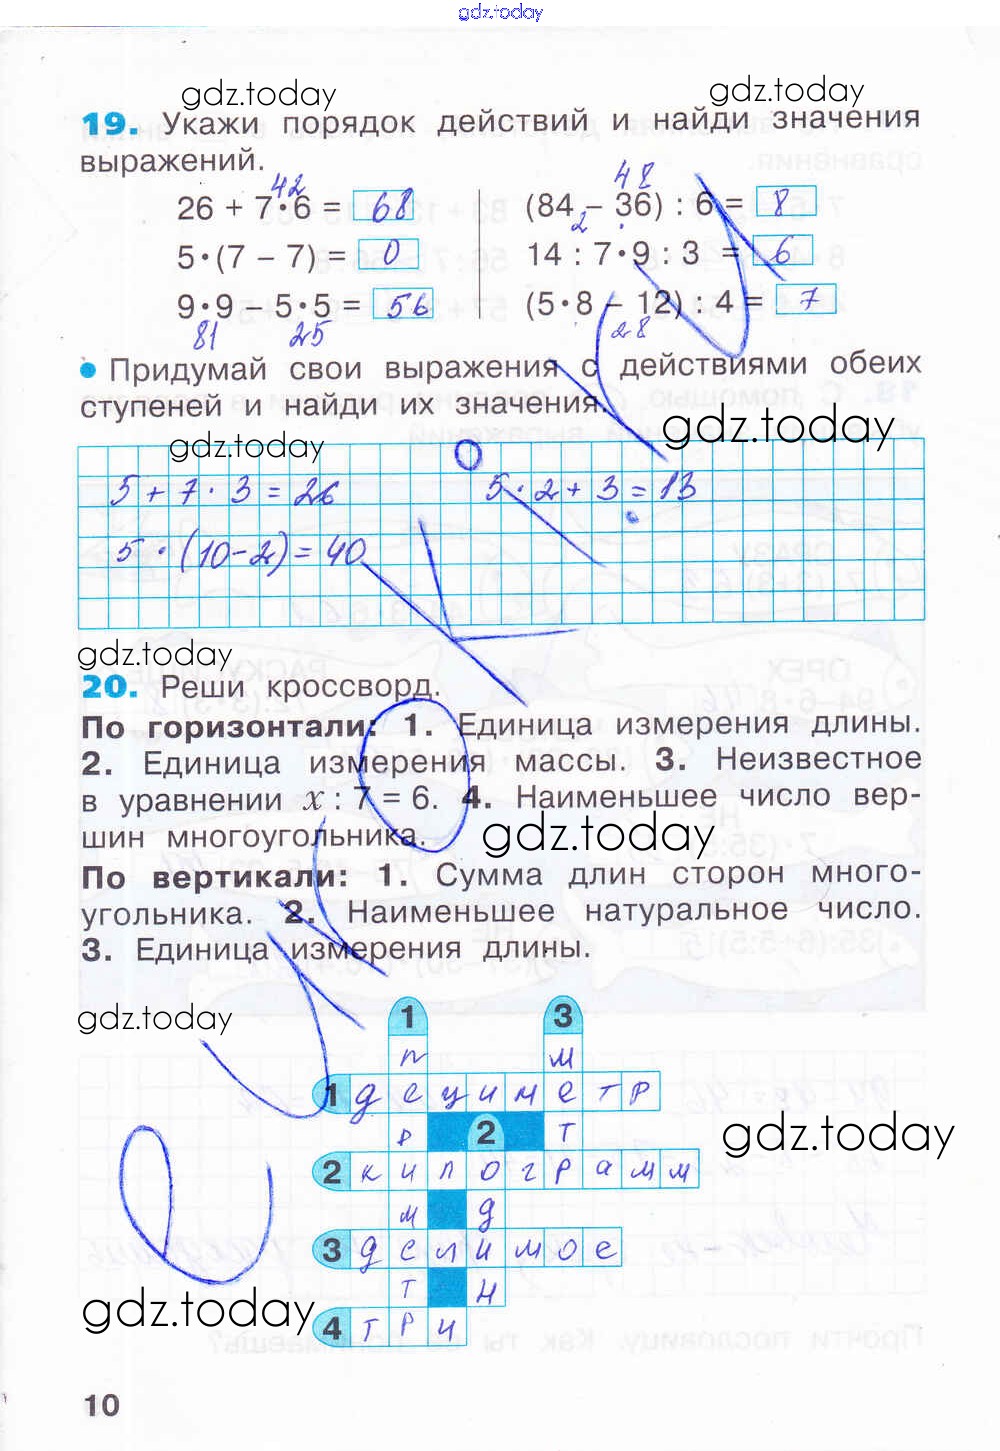 gdz.today
gdz.today
gdz.today
19. Укажи порядок действий и найди значения
выражений.
42
48
26 + 7·6 = 68
(84 – 36) : 6 = 8
2
5·(7 – 7) = 0
14 : 7·9 : 3 = 6
9·9 – 5·5 = 56
(5·8 – 12) : 4 = 7
81 25
28
• Придумай свои выражения с действиями обеих
ступеней и найди их значения.
gdz.today
gdz.today
5 + 7 · 3 = 26
5 · 2 + 3 = 13
5 · (10-2) = 40
gdz.today
20. Реши кроссворд.
По горизонтали: 1. Единица измерения длины.
2. Единица измерения массы. 3. Неизвестное
в уравнении x : 7 = 6. 4. Наименьшее число вер-
шин многоугольника.
gdz.today
По вертикали: 1. Сумма длин сторон много-
угольника. 2. Наименьшее натуральное число.
3. Единица измерения длины.
gdz.today
1 3
п м
1 дециметр
р 2 т
gdz.today
2 килограмм
м д
3 делимое
т н
gdz.today
4 три
10